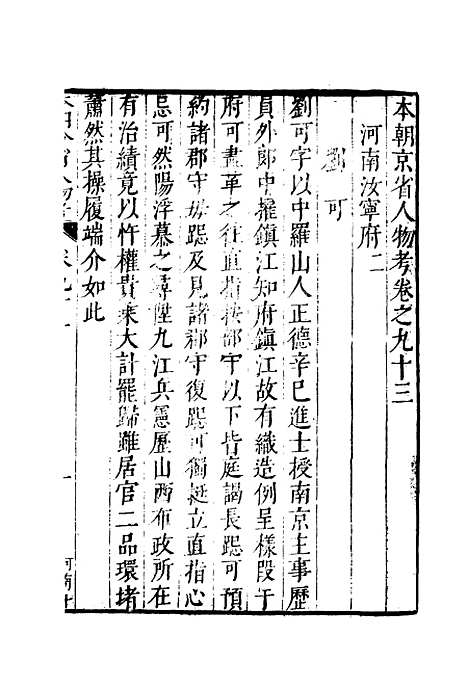 本朝京省人物考卷之九十三
河南汝寧府二
劉可
劉可字以中羅山人正德辛巳進士授南京主事歷
員外郎中擢鎮江知府鎮江故有織造例呈樣段于
府可盡革之往直指按部守以下皆庭謁長跽可預
約諸郡守毋跽及見諸郡守復跽可獨挺立直指心
忌可然陽浮慕之尋陞九江兵憲歷山西布政所在
有治績竟以忤權貴乘大計罷歸雖居官二品環堵
蕭然其操履端介如此
人物考
卷九十三
一
河南